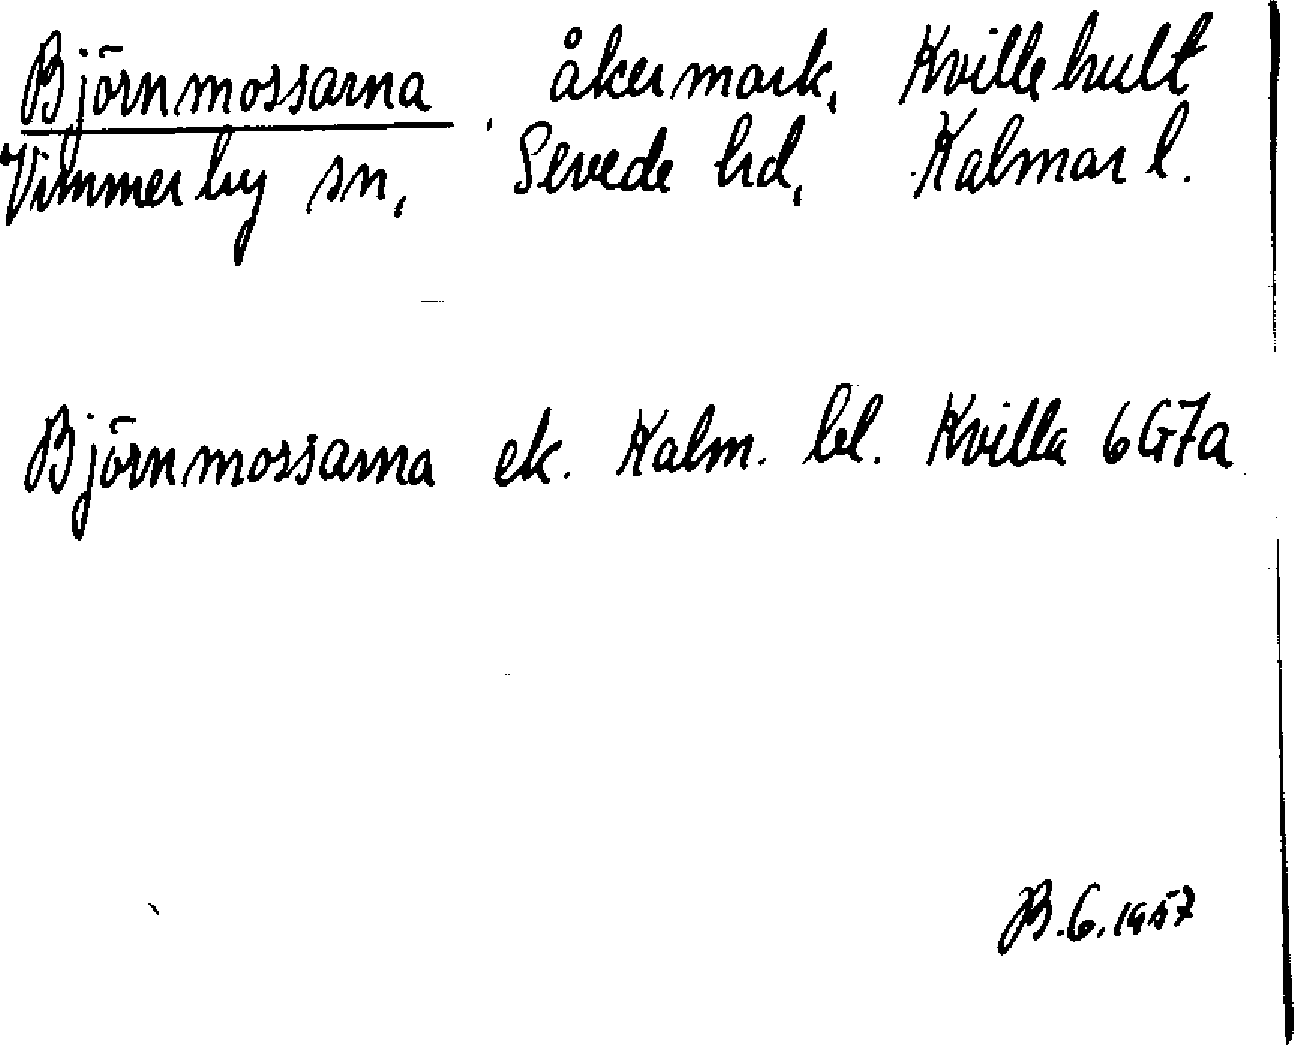 Björnmossarna, åkermark, Kvillehult
Vimmerby sn, Sevede hd, Kalmar l.
Björnmossarna ek. Kalm. bl. Kvilla 6G7a
B.G. 1957